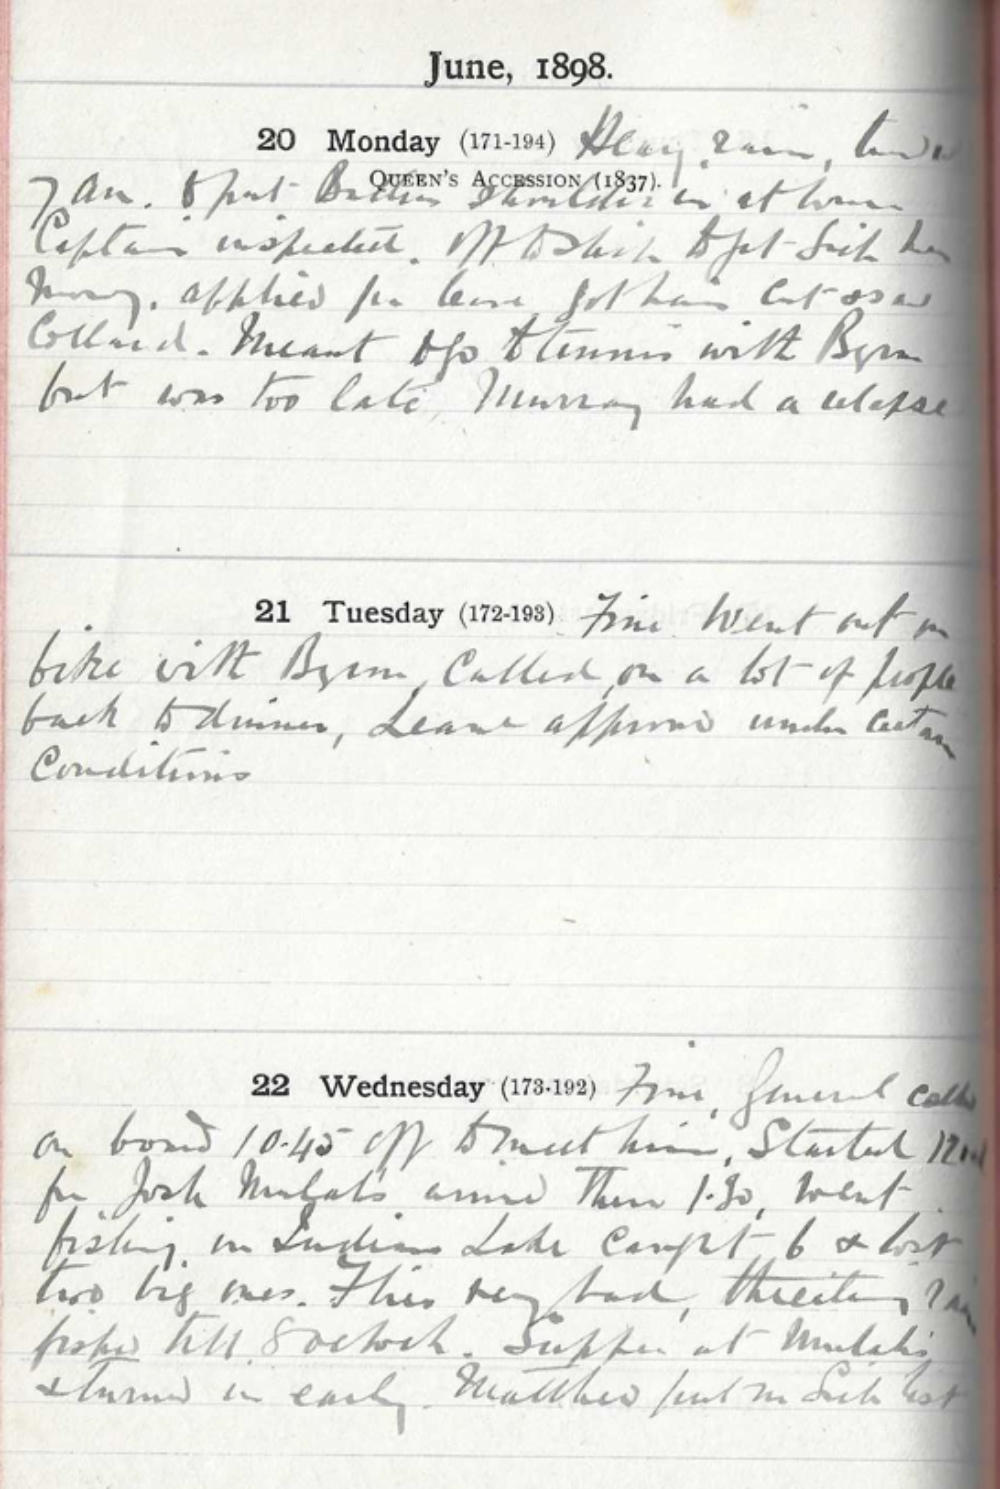 June, 1898.
20 Monday (171-194) Heavy rain,
QUEEN'S ACCESSION (1837).
7 am. & put shoulder in at
Captain inspected. Off to ship to get Sick
Money. applied for leave got hair cut & saw
Collard. Meant to go to tennis with Byrn
but was too late, Murray had a relapse
21 Tuesday (172-193) Fine Went out on
bike with Byrn, Called on a lot of people
back to dinner, Leave approved under certain
Conditions
22 Wednesday (173-192) Fine, General called
on board 10.45 off to meet him, Started
for Josh arrived there 1.30, went
fishing in Indian Lake caught 6 & lost
two big ones. Flies very bad, rain
fished till 8 oclock. Supper at
& turned in early. Matthew put on Sick list